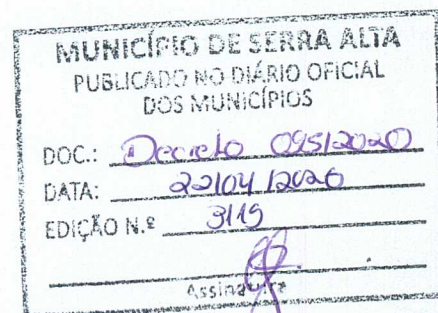 MUNICÍPIO DE SERRA ALTA
PUBLICADO NO DIÁRIO OFICIAL
DOS MUNICÍPIOS
DOC.: Decreto 095/2020
DATA: 22/04/2020
EDIÇÃO N.º 3119
Assinatura